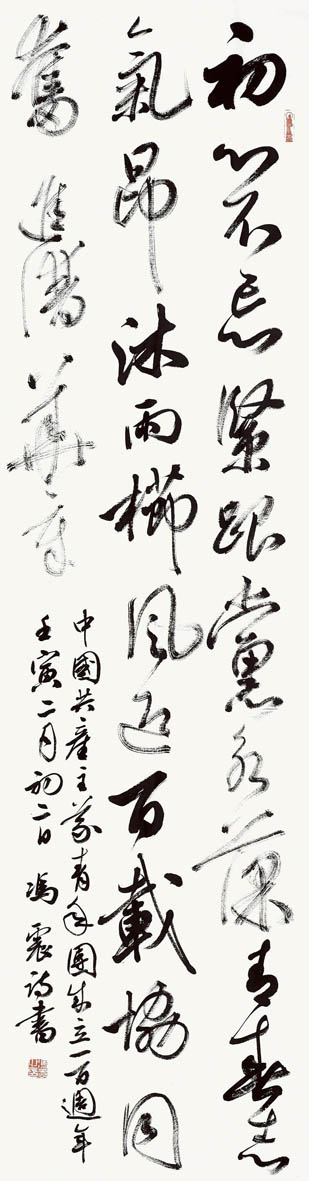 初心不忘緊跟黨永葆青春志
氣昂沐雨櫛風迎百載協同
奮進譜華章
中國共產主義青年團成立一百週年
壬寅二月初二日 馮震詩書